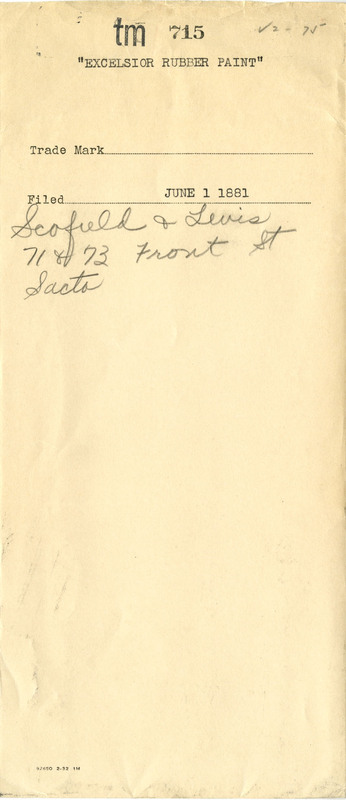 tm 715
"EXCELSIOR RUBBER PAINT"
Trade Mark
Filed JUNE 1 1881
Scofield & Lewis
71 & 73 Front St
Sacto